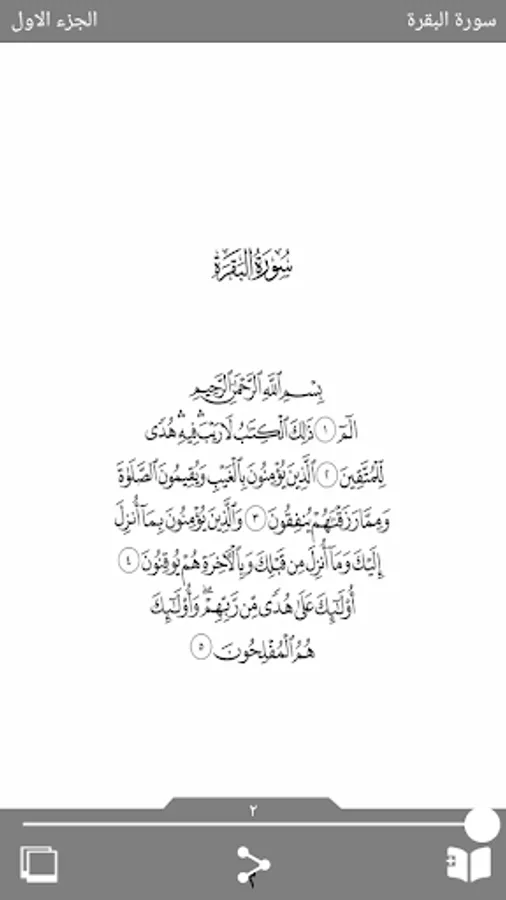 سورة البقرة
الجزء الاول
سُورَةُ الْبَقَرَةِ
بِسْمِ ٱللَّهِ ٱلرَّحْمَٰنِ ٱلرَّحِيمِ
الٓمٓ ١ ذَٰلِكَ ٱلْكِتَٰبُ لَا رَيْبَ ۛ فِيهِ ۛ هُدًى
لِّلْمُتَّقِينَ ٢ ٱلَّذِينَ يُؤْمِنُونَ بِٱلْغَيْبِ وَيُقِيمُونَ ٱلصَّلَوٰةَ
وَمِمَّا رَزَقْنَٰهُمْ يُنفِقُونَ ٣ وَٱلَّذِينَ يُؤْمِنُونَ بِمَآ أُنزِلَ
إِلَيْكَ وَمَآ أُنزِلَ مِن قَبْلِكَ وَبِٱلْءَاخِرَةِ هُمْ يُوقِنُونَ ٤
أُو۟لَٰٓئِكَ عَلَىٰ هُدًى مِّن رَّبِّهِمْ ۖ وَأُو۟لَٰٓئِكَ
هُمُ ٱلْمُفْلِحُونَ ٥
٢
٢